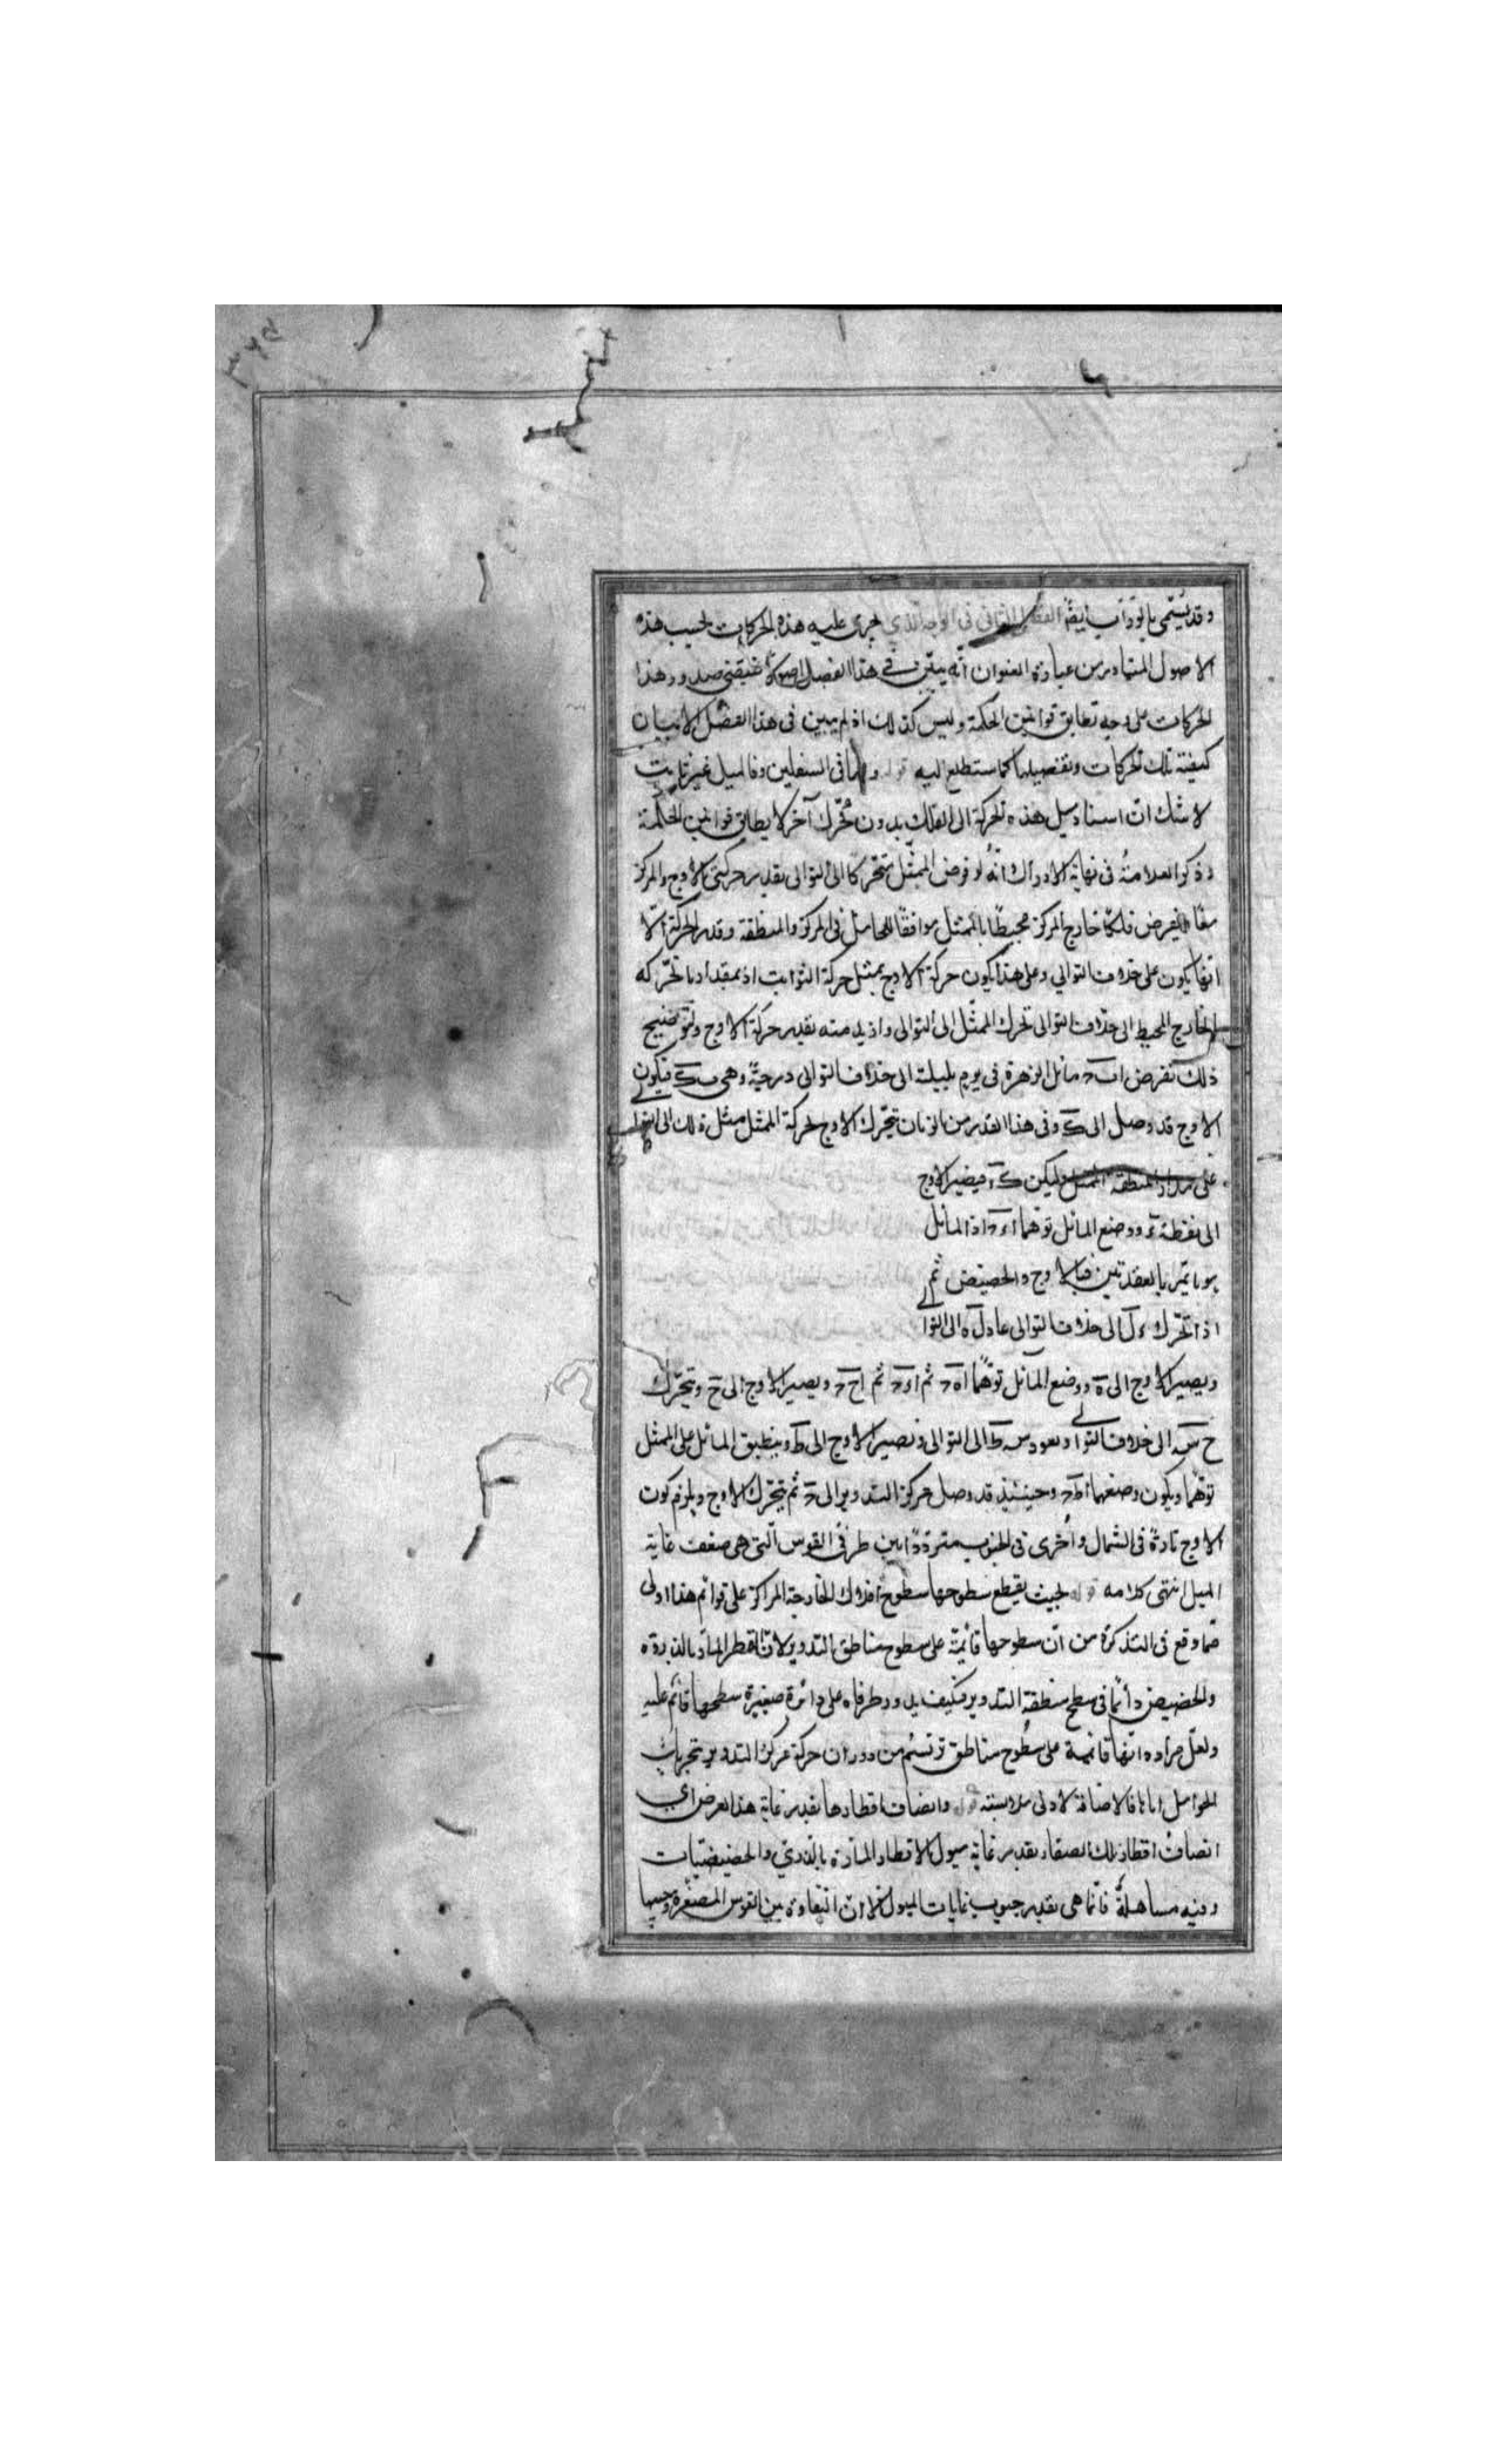 وقد يسمى بالوراب ايضا الفصل الثانى فى الوجه الذي يجرى عليه هذه الحركات بحسب هذه
الاصول المتبادر من عبارة العنوان انه يبين فى هذا الفصل اصولا يقتضى صدور هذا
الحركات على وجه تطابق قوانين الحكمة وليس كذلك اذ لم يبين فى هذا الفصل الا بيان
كيفية تلك الحركات وتفصيلها كما ستطلع اليه قوله واما فى السفلين فالميل غير ثابت
لا شك ان اسناد ميل هذه الحركة الى الفلك بدون محرك آخر لا يطابق قوانين الحكمة
وذكر العلامة فى نهاية الادراك انه لو فرض الممثل متحركا الى التوالى بقدر حركتى الاوج والمركز
معا ويفرض فلكا خارج المركز محيطا بالممثل موافقا للحامل فى المركز والمنطقة وقدر الحركة الا
انها يكون على خلاف التوالي وعلى هذا يكون حركة الاوج بمثل حركة الثوابت اذ بمقدار ما تحركه
الخارج المحيط الى خلاف التوالى تحرك الممثل الى التوالى وازيد منه بقدر حركة الاوج ولتوضيح
ذلك نفرض ا ب ح مائل الزهرة فى يوم بليلته الى خلاف التوالى درجة وهى ب ك فيكون
الاوج قد وصل الى ك وفى هذا القدر من الزمان تحرك الاوج بحركة الممثل مثل ذلك الى التوالى
على مدار المنطقة الممثل وليكن ك ء فيصير الاوج
الى نقطة ء ووضع المائل توهما ا ء ح اذ المائل
يوما تمر بالعقدتين فبالاوج والحضيض ثم
اذا تحرك ء ل الى خلاف التوالى عاد ل ه الى التوا
ويصير الاوج الى ه ووضع المائل توهما ا ه ح ثم ا و ح ثم ا ح ح ويصير الاوج الى ح ويتحرك
ح س الى خلاف التوالى ويعود س ط الى التوالى ويصير الاوج الى ط وينطبق المائل على الممثل
توهما ويكون وضعهما ا ط ح وحينئذ قد وصل مركز التدوير الى ح ثم يتحرك الاوج ويلزم كون
الاوج تارة فى الشمال وأخرى فى الجنوب مترددا بين طرفى القوس التى هى ضعف غاية
الميل انتهى كلامه قوله بحيث يقطع سطوحها سطوح افلاك الخارجة المراكز على قوائم هذا اولى
مما وقع فى التذكرة من ان سطوحها قائمة على سطوح مناطق التدوير لان القطر المار بالذروة
والحضيض دائما فى سطح منطقة التدوير فكيف يدور طرفاه على دائرة صغيرة سطحها قائم عليه
ولعل مراده انها قائمة على سطوح مناطق ترتسم من دوران حركة مركز التدوير بتحريك
الحوامل اياها فالاضافة لادنى ملابسته قوله وانصاف اقطارها بقدر غاية هذا العرض اي
انصاف اقطار تلك الصغار بقدر غاية ميول الاقطار المارة بالذرى والحضيضيات
وفيه مساهلة فانما هى بقدر جيوب غايات الميول الا ان التفاوت بين القوس المصغرة وجيبها